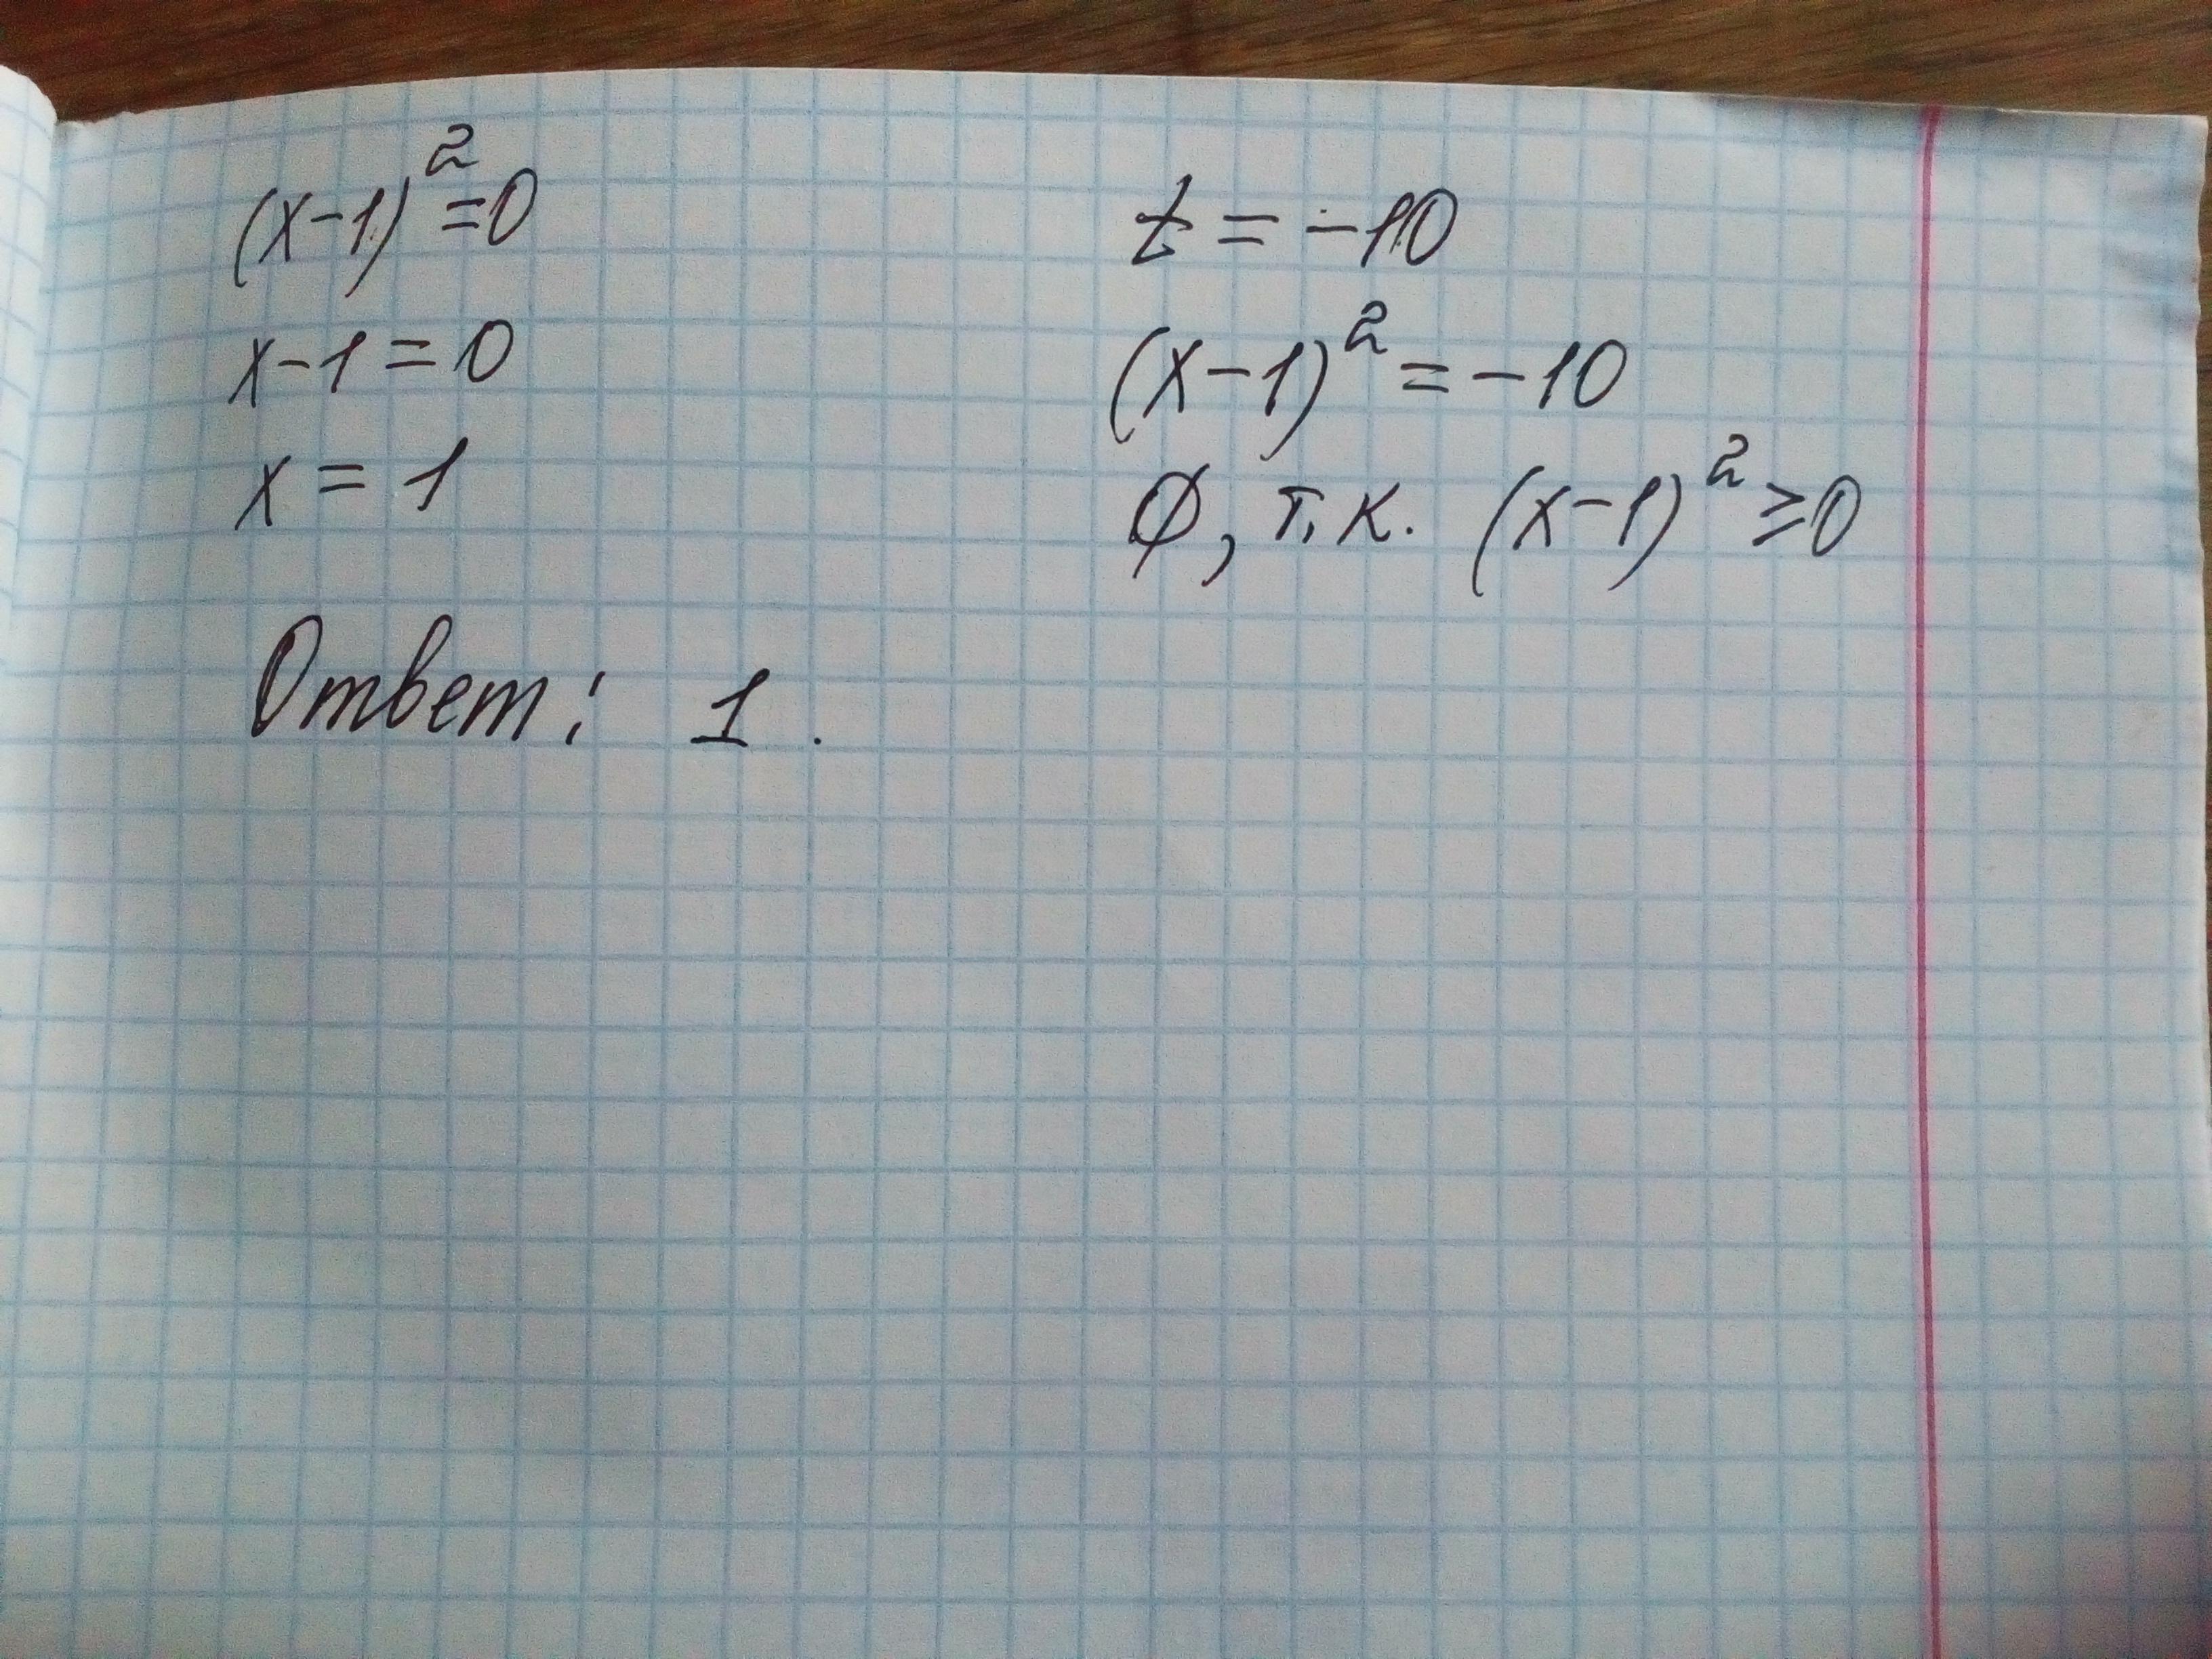 (x-1)²=0
x-1=0
x=1
t=-10
(x-1)²=-10
∅, т.к. (x-1)²≥0
Ответ: 1.